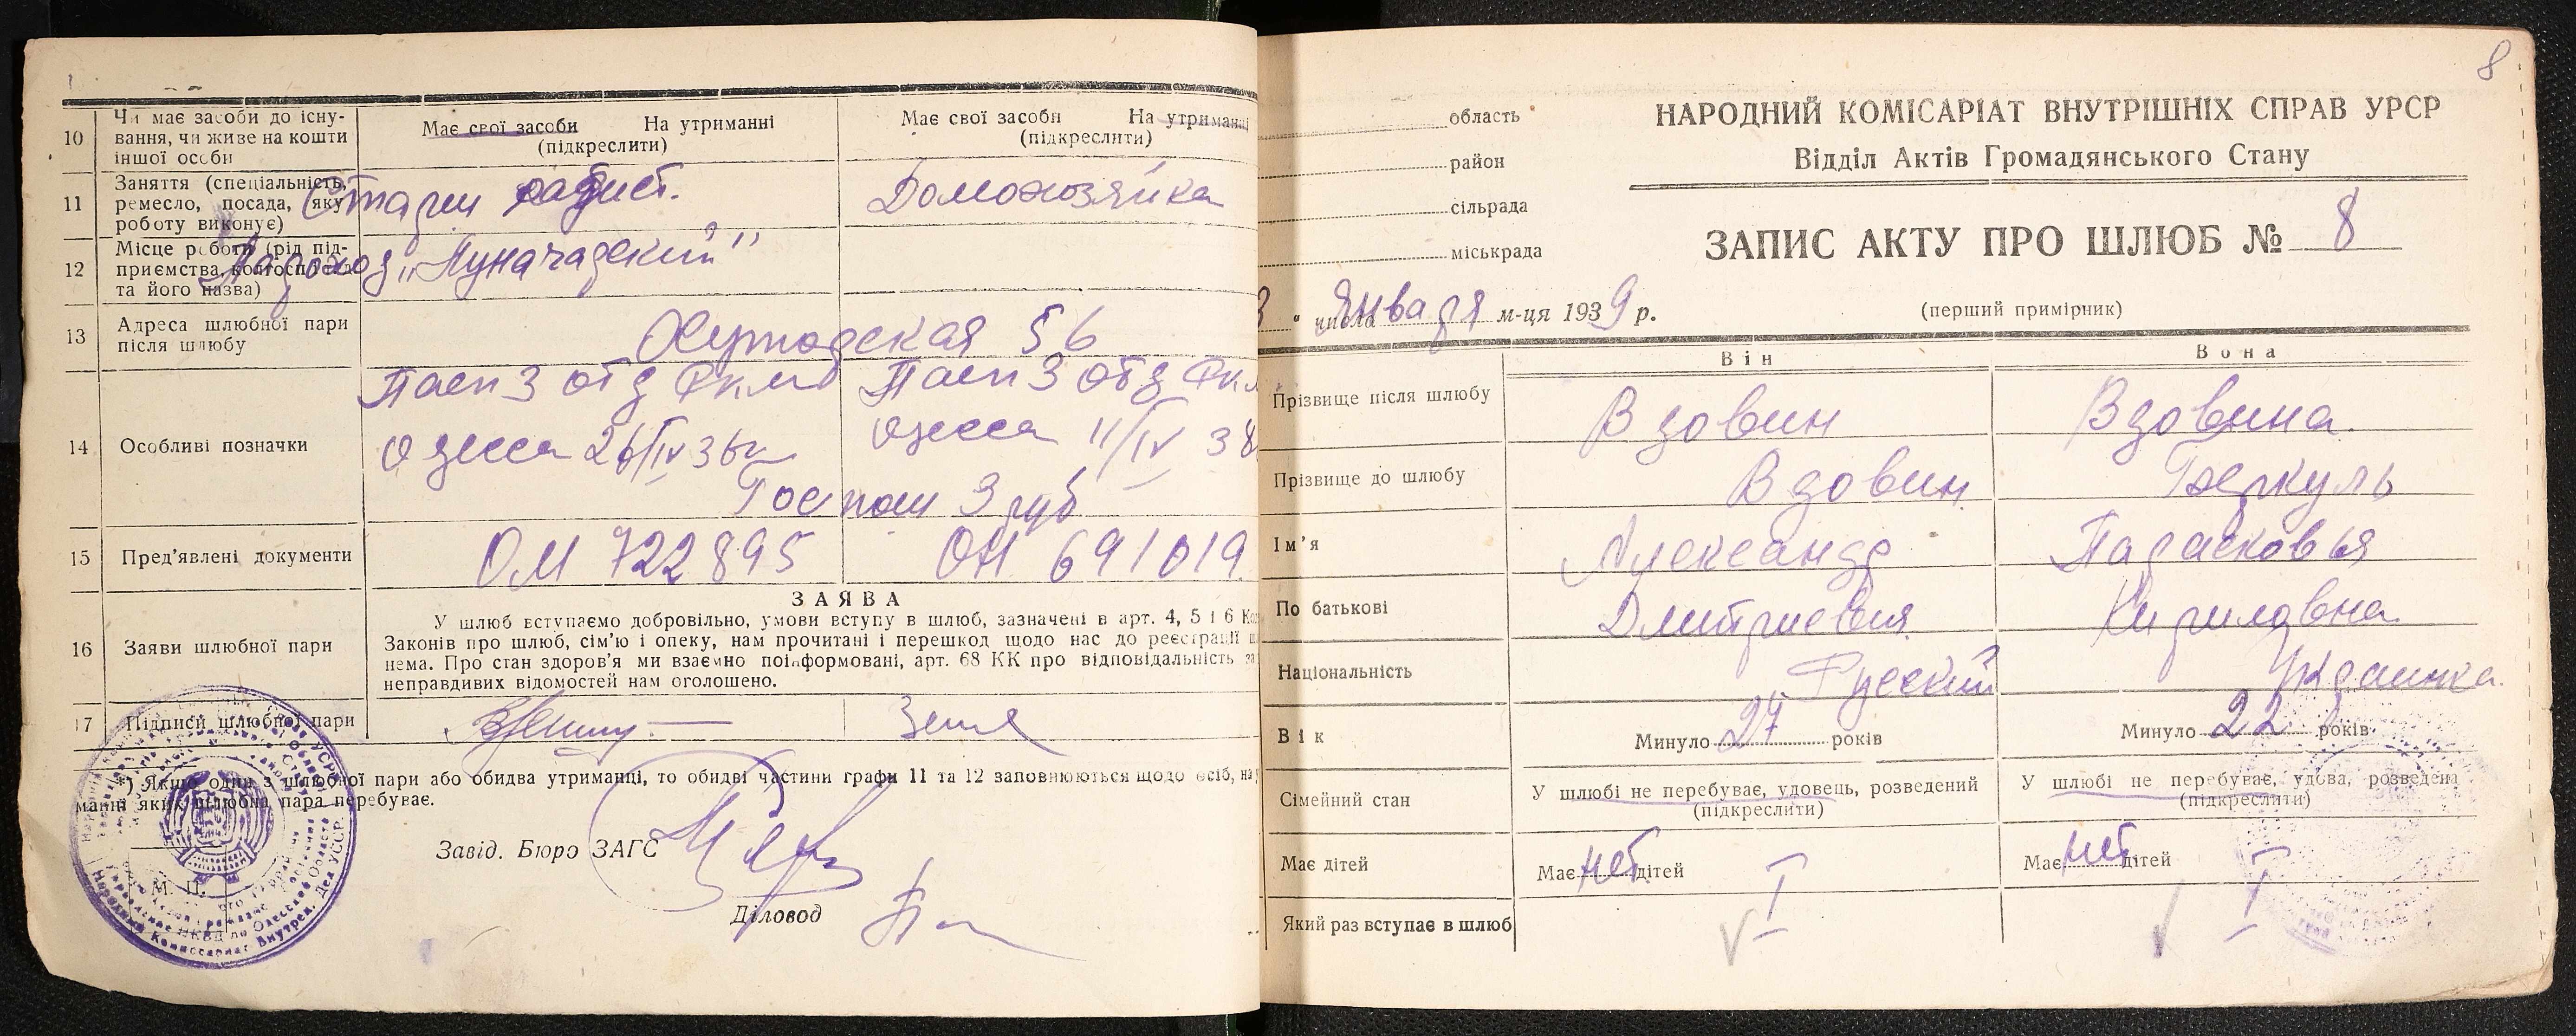 10 Чи має засоби до існування, чи живе на кошти іншої особи
Має свої засоби На утриманні
(підкреслити)
Має свої засоби На утриманні
(підкреслити)
11 Заняття (спеціальність, ремесло, посада, яку роботу виконує)
радист.
Домохозяйка
12 Місце роботи (рід підприємства, та його назва)
Пароход „Луначарский"
13 Адреса шлюбної пари після шлюбу
56
14 Особливі позначки
Пасп 3 отд
Одесса 26/IV 36г
Пасп 3 отд
Одесса 11/IV 38
Госпош 3 руб
15 Пред'явлені документи
ОМ 722895
ОМ 691019
16 Заяви шлюбної пари
ЗАЯВА
У шлюб вступаємо добровільно, умови вступу в шлюб, зазначені в арт. 4, 5 і 6
Законів про шлюб, сім'ю і опеку, нам прочитані і перешкод щодо нас до реєстрації
нема. Про стан здоров'я ми взаємно поінформовані, арт. 68 КК про відповідальність за
неправдивих відомостей нам оголошено.
17 Підписи шлюбної пари
*) Якщо один з шлюбної пари або обидва утриманці, то обидві частини графи 11 та 12 заповнюються щодо осіб, на
манні яких шлюбна пара перебуває.
М. П.
Завід. Бюро ЗАГС
Діловод
8
область
район
сільрада
міськрада
НАРОДНИЙ КОМІСАРІАТ ВНУТРІШНІХ СПРАВ УРСР
Відділ Актів Громадянського Стану
ЗАПИС АКТУ ПРО ШЛЮБ № 8
3 " числа Января м-ця 1939 р.
(перший примірник)
Він
Вона
Прізвище після шлюбу
Вдовин
Вдовина.
Прізвище до шлюбу
Вдовин
Ім'я
Александр
Парасковья
По батькові
Дмитриевич
Кириловна
Національність
Русский
Украинка.
Вік
Минуло 27 років
Минуло 22 років
Сімейний стан
У шлюбі не перебуває, удовець, розведений
(підкреслити)
У шлюбі не перебуває, удова, розведена
(підкреслити)
Має дітей
Має нет дітей
Має нет дітей
Який раз вступає в шлюб
I
I